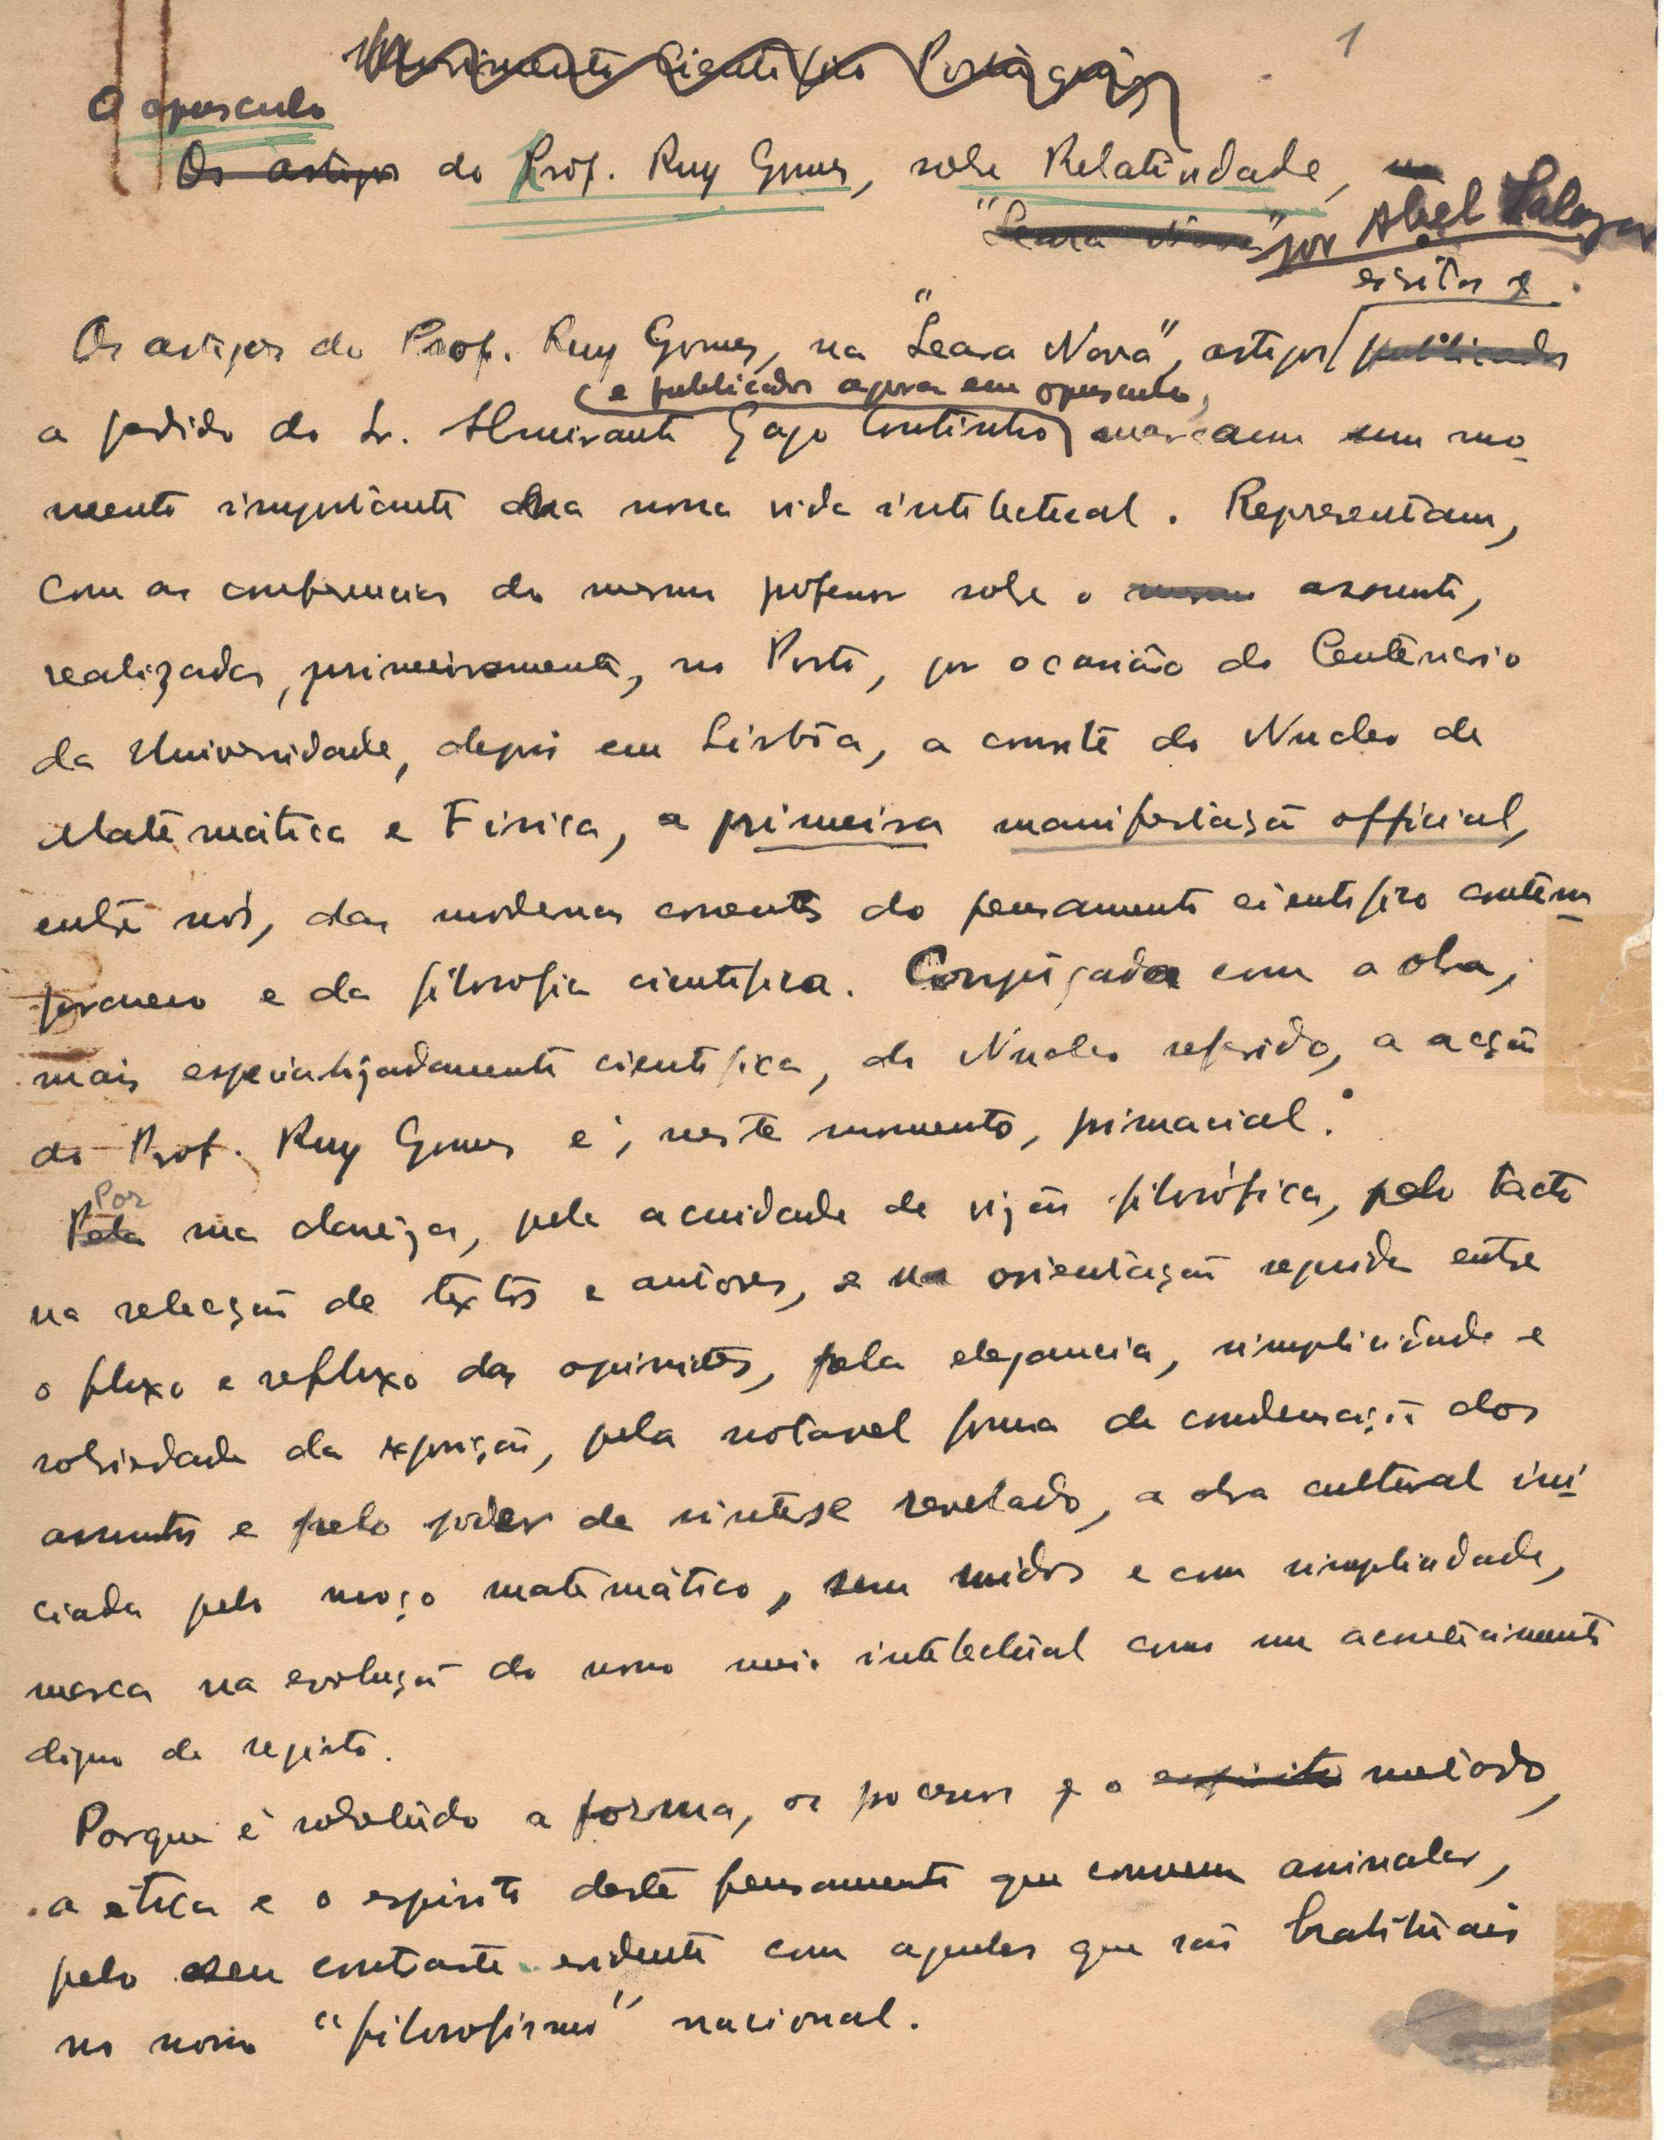 1
Movimento Cientifico Português
O opusculo
Os artigos do Prof. Ruy Gomes, sobre Relatividade, na
"Seara Nova" por Abel Salazar
escritos
Os artigos do Prof. Ruy Gomes, na "Seara Nova", artigos publicados
e publicados agora em opusculo,
a pedido do Sr. Almirante Gago Coutinho, marcam um mo-
mento importante da nossa vida intelectual. Representam,
com as conferencias do mesmo professor sobre o mesmo assunto,
realizadas, primeiramente, no Porto, por ocasião do Centenário
da Universidade, depois em Lisbôa, a convite do Nucleo de
Matemática e Fisica, a primeira manifestação official,
entre nós, das modernas correntes do pensamento cientifico contem-
poraneo e da filosofia cientifica. Conjugada com a obra,
mais especialisadamente cientifica, do Nucleo referido, a acção
do Prof. Ruy Gomes é, neste momento, primacial.
Por
Pela sua clareza, pela acuidade de visão filosófica, pelo tacto
na selecção de textos e autores, e na orientação seguida entre
o fluxo e refluxo das opiniões, pela elegancia, simplicidade e
sobriedade da exposição, pela notavel forma de condensação dos
assuntos e pelo poder de sintese revelado, a obra cultural ini-
ciada pelo moço matemático, sem ruidos e com simplicidade,
marca na evolução do nosso meio intelectual como um acontecimento
digno de registo.
Porque é sobretudo a forma, os processos e o espirito metodo,
a ética e o espirito deste pensamento que convem assinalar,
pelo seu contraste evidente com aqueles que são habituais
no nosso "filosofismo" nacional.